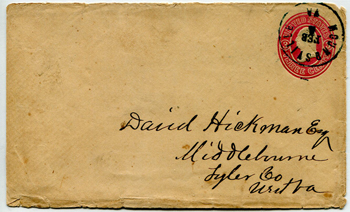 FEB
VA
David Hickman Esq
Middlebourne
Tyler Co
West Va